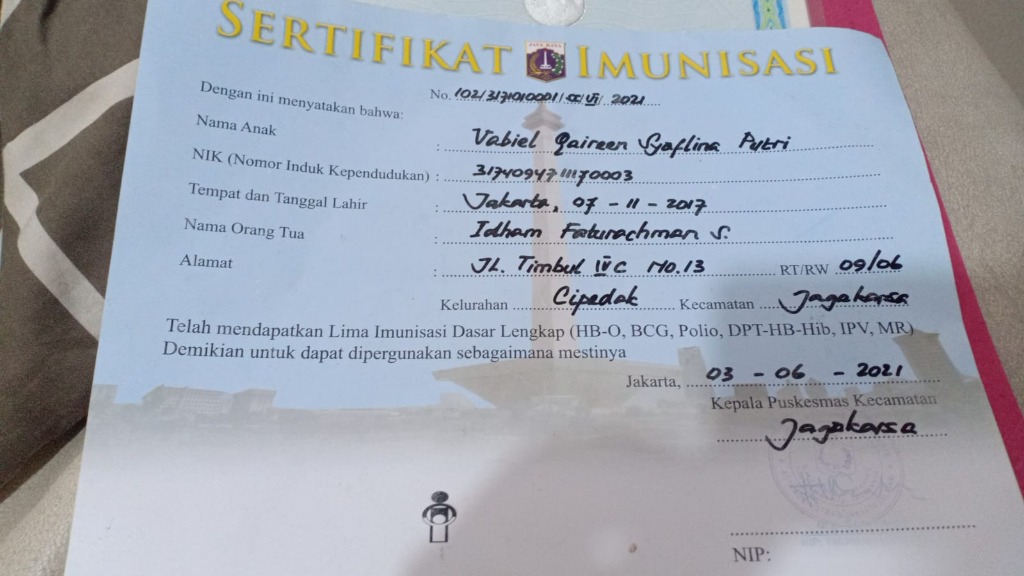 SERTIFIKAT IMUNISASI
JAYA RAYA
No. 102/3171010001/ /VI/ 2021
Dengan ini menyatakan bahwa:
Nama Anak : Vabiel Qaireen Syaflina Putri
NIK (Nomor Induk Kependudukan) : 3174094711170003
Tempat dan Tanggal Lahir : Jakarta, 07 - 11 - 2017
Nama Orang Tua : Idham Faturachman S.
Alamat : JL. Timbul IV C No.13 RT/RW 09/06
Kelurahan Cipedak Kecamatan Jagakarsa
Telah mendapatkan Lima Imunisasi Dasar Lengkap (HB-O, BCG, Polio, DPT-HB-Hib, IPV, MR)
Demikian untuk dapat dipergunakan sebagaimana mestinya
Jakarta, 03 - 06 - 2021
Kepala Puskesmas Kecamatan
Jagakarsa
NIP: